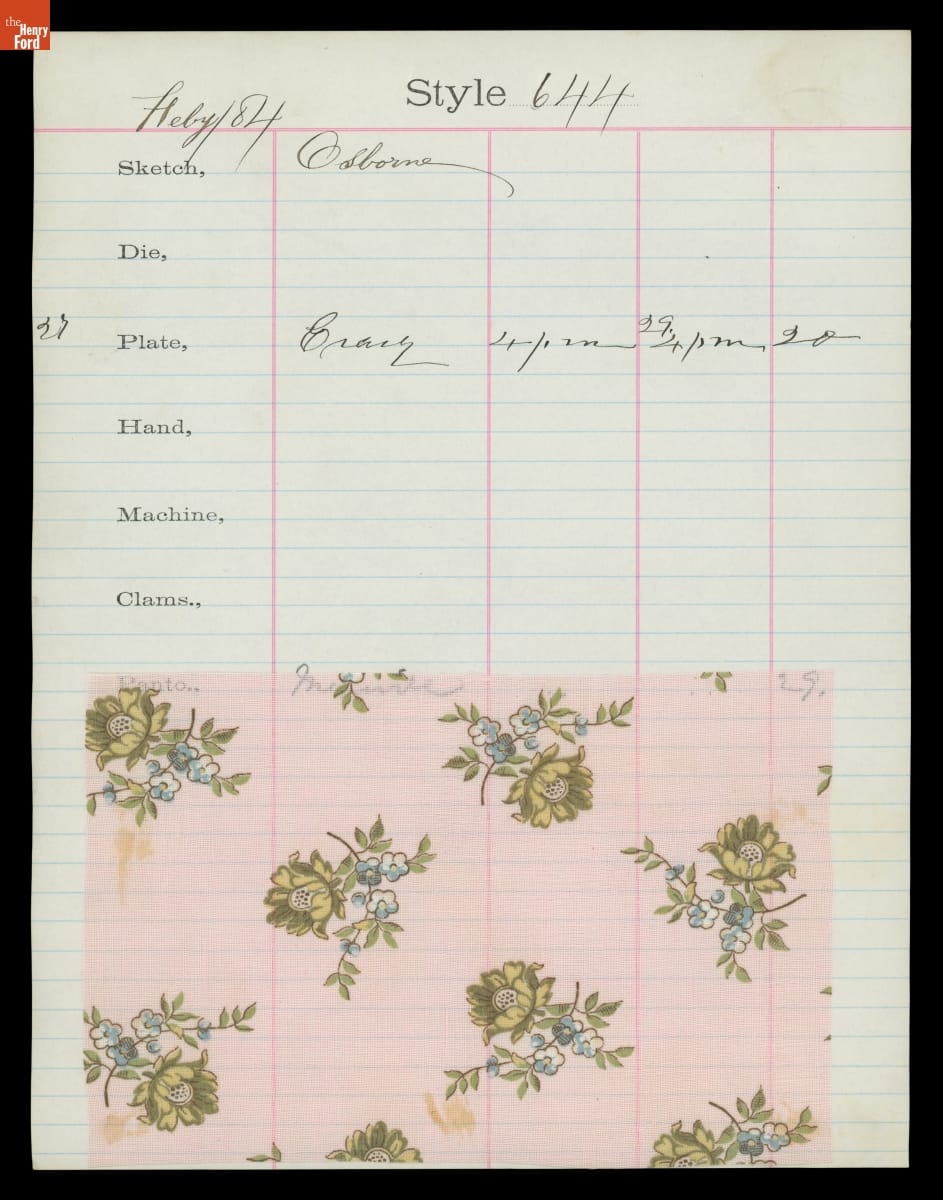 the
Henry
Ford
Style 644
Feby/84
Sketch, Osborne
Die,
27 Plate, 4 p.m 29. 4 pm, 20
Hand,
Machine,
Clams.,
Panto.. 29.